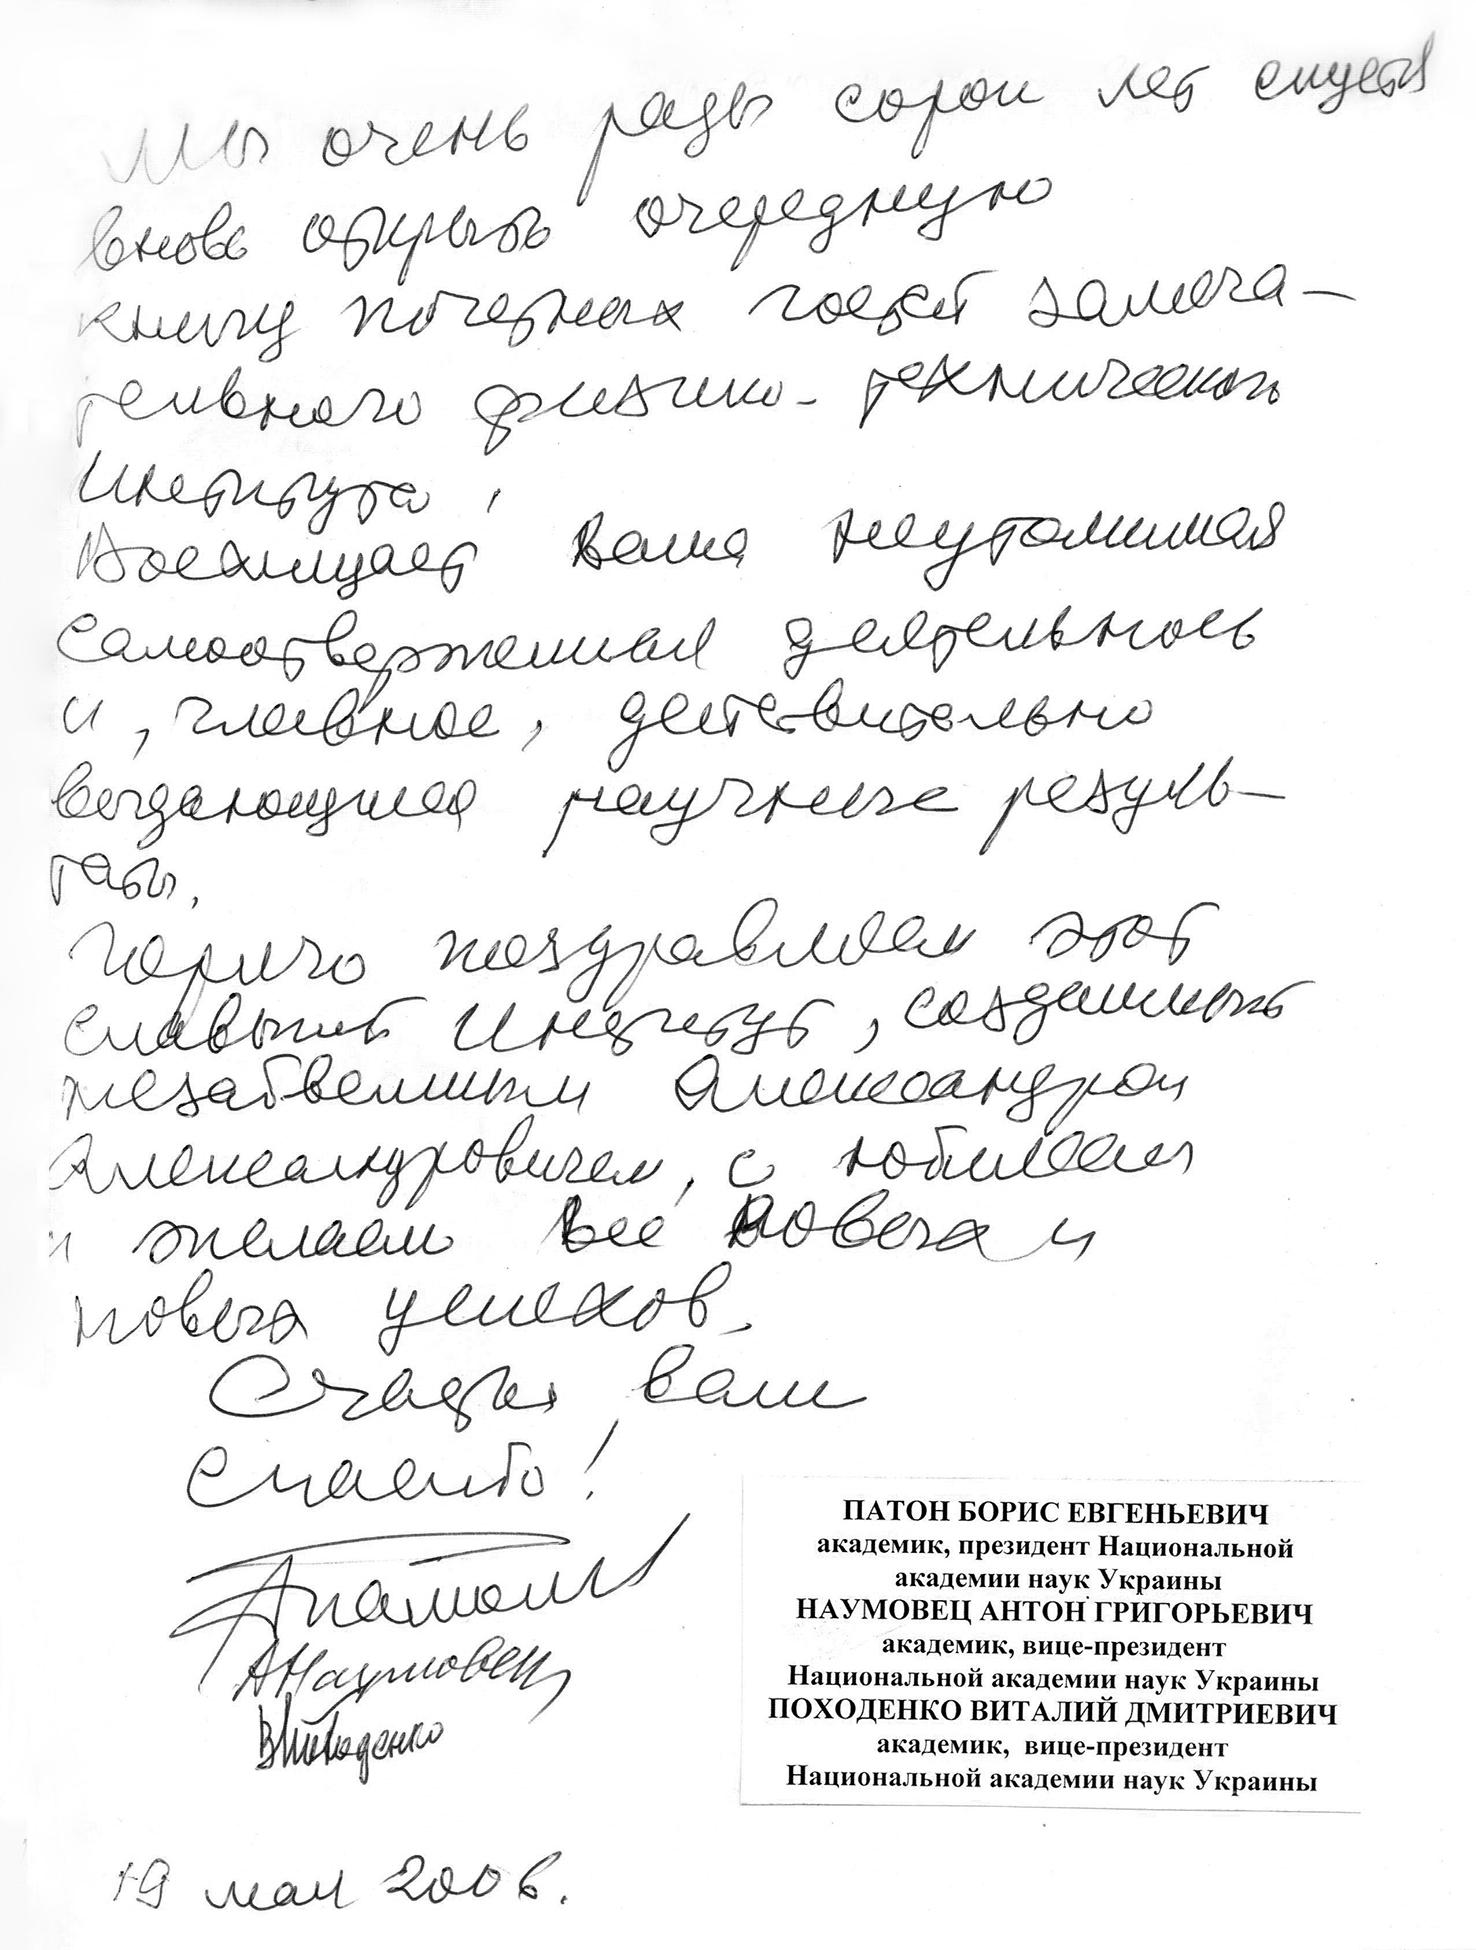 Мы очень рады сорок лет спустя
вновь открыть очередную
книгу почетных гостей замеча-
тельного физико-технического
Института.
Восхищает Ваша неутомимая
самоотверженная деятельность
и, главное, действительно
выдающиеся научные резуль-
таты.
Горячо поздравляем этот
славный Институт, созданный
незабвенным Александром
Александровичем, с юбилеем
и желаем все новых и
новых успехов.
Счастья вам
Спасибо!
Патон
АНаумовец
ВПоходенко
19 мая 2008.
ПАТОН БОРИС ЕВГЕНЬЕВИЧ
академик, президент Национальной
академии наук Украины
НАУМОВЕЦ АНТОН ГРИГОРЬЕВИЧ
академик, вице-президент
Национальной академии наук Украины
ПОХОДЕНКО ВИТАЛИЙ ДМИТРИЕВИЧ
академик, вице-президент
Национальной академии наук Украины